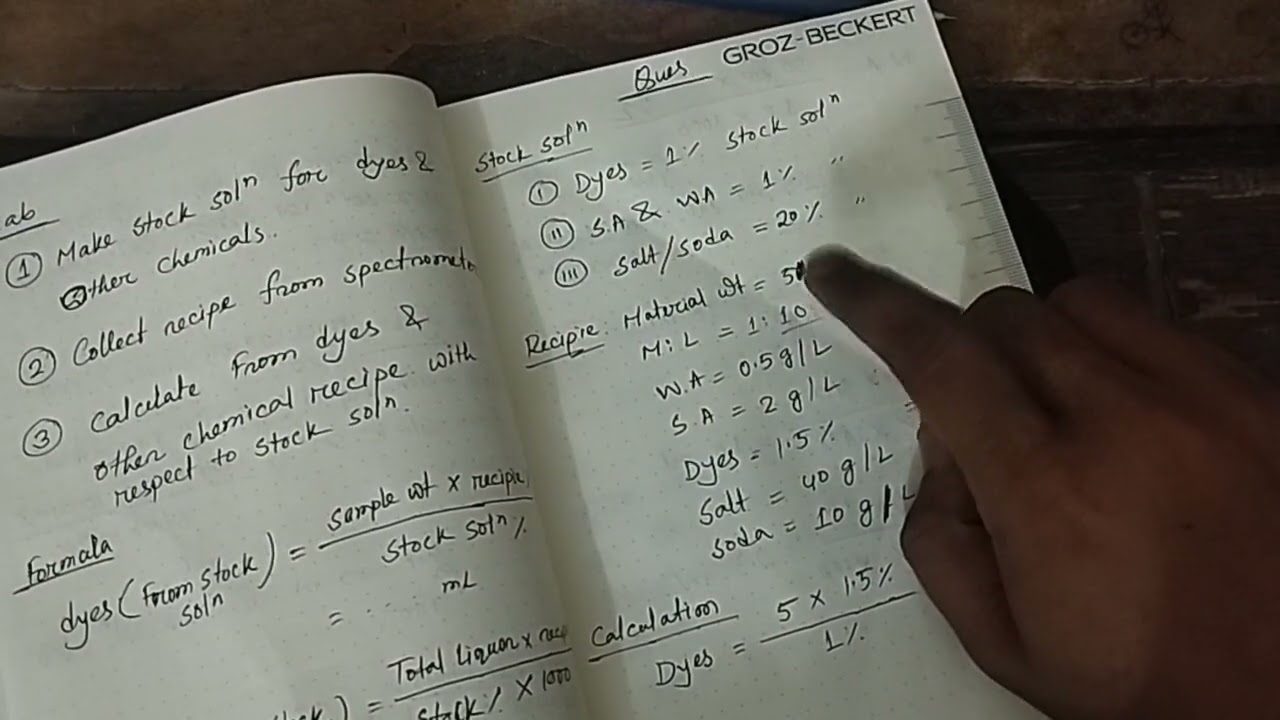 ab
① Make stock solⁿ forc dyes &
Other chemicals.
② Collect recipe from spectrometo
③ Calculate from dyes &
other chemical recipe with
respect to stock solⁿ.
Formala
dyes (from stock solⁿ) = sample wt x recipie
stock solⁿ %
= ..... mL
= Total Liquor x
stock % x 1000
GROZ-BECKERT
Ques
Stock solⁿ
① Dyes = 1% stock solⁿ
② S.A & W.A = 1% "
③ Salt/soda = 20% "
Recipie: Material wt = 5
M:L = 1:10
W.A = 0.5 g/L
S.A = 2 g/L
Dyes = 1.5%
Salt = 40 g/L
soda = 10 g/L
Calculation
Dyes = 5 x 1.5%
1%